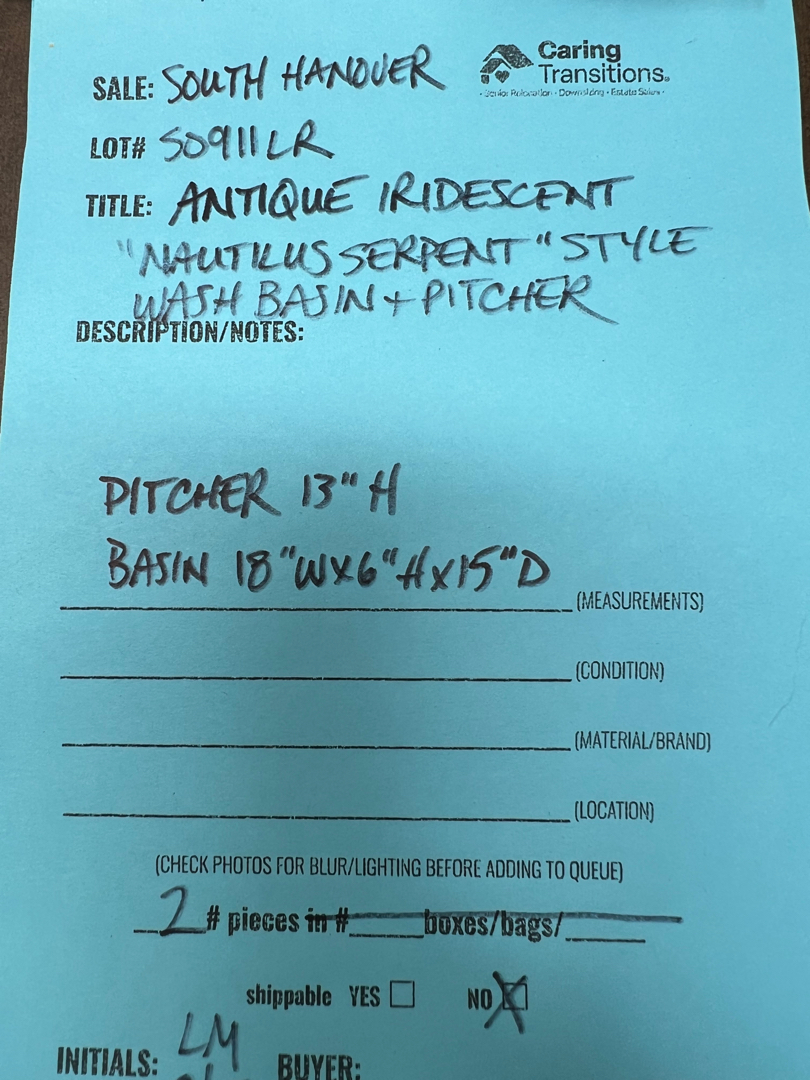 Caring
SALE: SOUTH HANOVER Transitions®
· Senior Relocation · Downsizing · Estate Sales ·
LOT# S0911LR
TITLE: ANTIQUE IRIDESCENT
"NAUTILUS SERPENT" STYLE
WASH BASIN + PITCHER
DESCRIPTION/NOTES:
PITCHER 13" H
BASIN 18"W x 6"H x 15"D
(MEASUREMENTS)
(CONDITION)
(MATERIAL/BRAND)
(LOCATION)
(CHECK PHOTOS FOR BLUR/LIGHTING BEFORE ADDING TO QUEUE)
2 # pieces in #____boxes/bags/____
shippable YES ☐ NO ☒
INITIALS: LM BUYER: